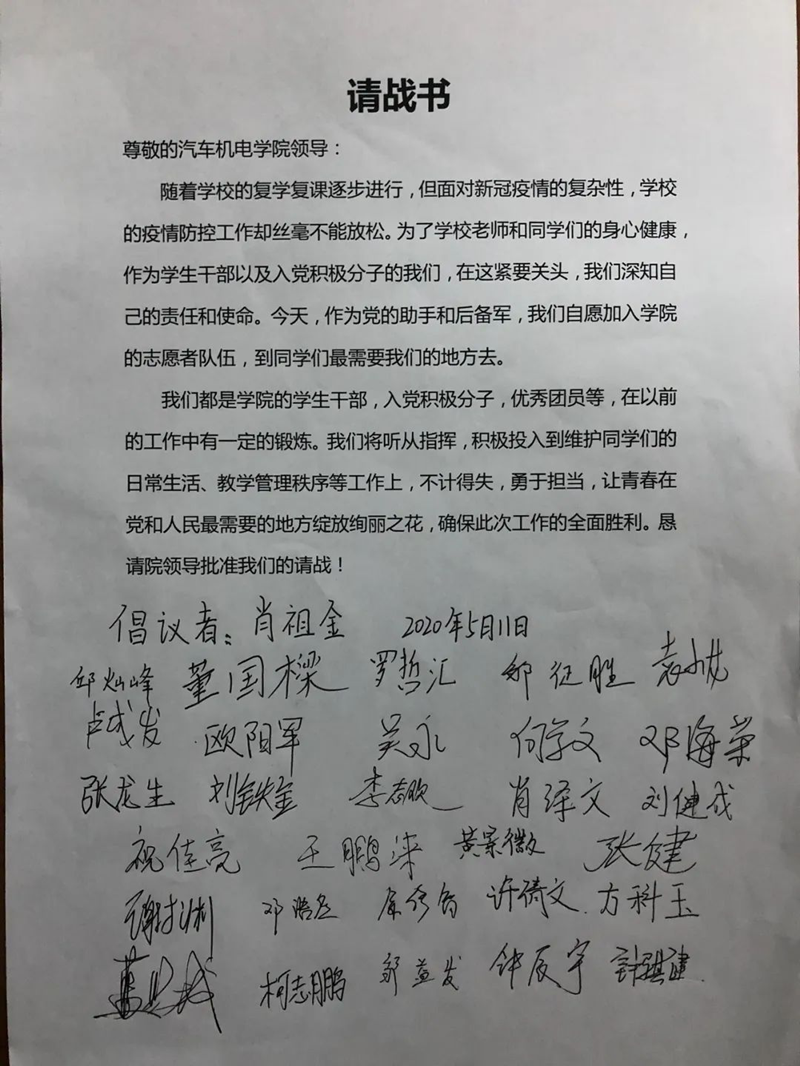 请战书
尊敬的汽车机电学院领导：
随着学校的复学复课逐步进行，但面对新冠疫情的复杂性，学校
的疫情防控工作却丝毫不能放松。为了学校老师和同学们的身心健康，
作为学生干部以及入党积极分子的我们，在这紧要关头，我们深知自
己的责任和使命。今天，作为党的助手和后备军，我们自愿加入学院
的志愿者队伍，到同学们最需要我们的地方去。
我们都是学院的学生干部，入党积极分子，优秀团员等，在以前
的工作中有一定的锻炼。我们将听从指挥，积极投入到维护同学们的
日常生活、教学管理秩序等工作上，不计得失，勇于担当，让青春在
党和人民最需要的地方绽放绚丽之花，确保此次工作的全面胜利。恳
请院领导批准我们的请战！
倡议者：肖祖金 2020年5月11日
邱灿峰 董国樑 罗哲汇 邹征胜
欧阳军 吴永 何学文 邓海荣
张龙生 刘铁金 李志欣 肖泽文 刘健成
祝佳亮 王鹏 黄景徽 张健
许倚文 方科玉
柯志鹏 邹益发 钟辰宇